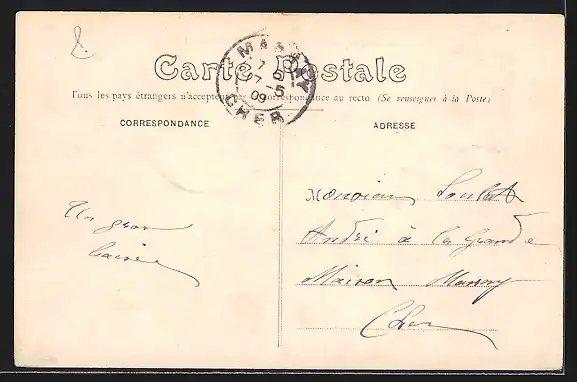 Carte Postale
Tous les pays étrangers n'acceptent pas la correspondance au recto (Se renseigner à la Poste)
MASSAY
7 5
7 -5
09
CHER
CORRESPONDANCE
ADRESSE
Un gros
baiser
Monsieur Soulat
André à la Grande
Maison Massay
Cher